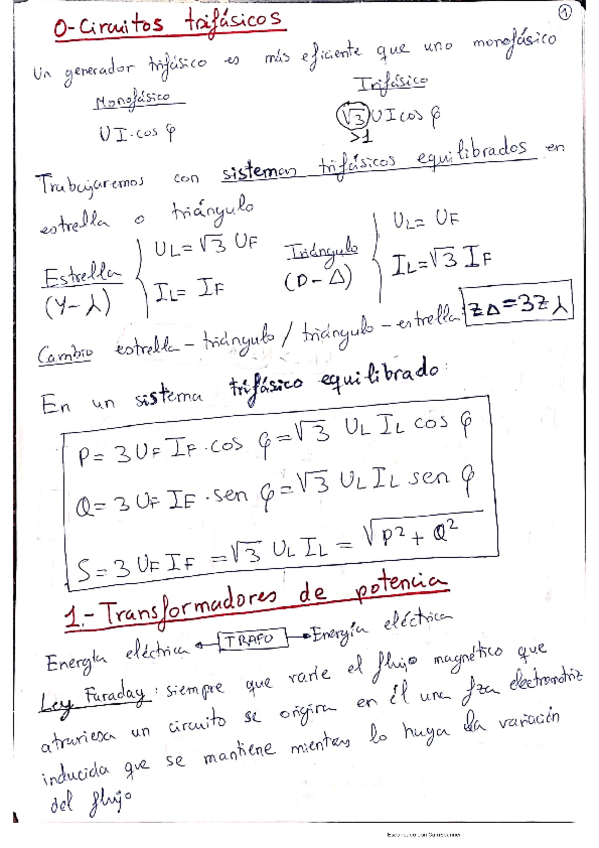 0-Circuitos trifásicos
1
Un generador trifásico es más eficiente que uno monofásico
Monofásico
Trifásico
UI·cos φ
√3 UI cos φ
>1
Trabajaremos con sistemas trifásicos equilibrados en
estrella o triángulo
Estrella (Y-⅄) { UL=√3 UF
IL= IF
Triángulo (D-Δ) { UL= UF
IL=√3 IF
Cambio estrella-triángulo / triángulo-estrella: ZΔ=3Z⅄
En un sistema trifásico equilibrado:
P= 3UF IF·cos φ=√3 UL IL cos φ
Q= 3UF IF·sen φ=√3 UL IL sen φ
S= 3UF IF =√3 UL IL = √P²+Q²
1.-Transformadores de potencia
Energía eléctrica TRAFO Energía eléctrica
Ley Faraday: siempre que varíe el flujo magnético que
atraviesa un circuito se origina en él una fza electromotriz
inducida que se mantiene mientras lo haga la variación
del flujo
Escaneado con CamScanner